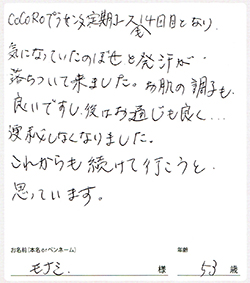 CoCoRoプラセンタ定期コース全14回目となり、
気になっていたのぼせと発汗が
落ちついて来ました。お肌の調子も
良いですし、後はお通じも良く…
便秘しなくなりました。
これからも続けて行こうと
思っています。
お名前[本名orペンネーム] 年齢
モナミ 様 53歳